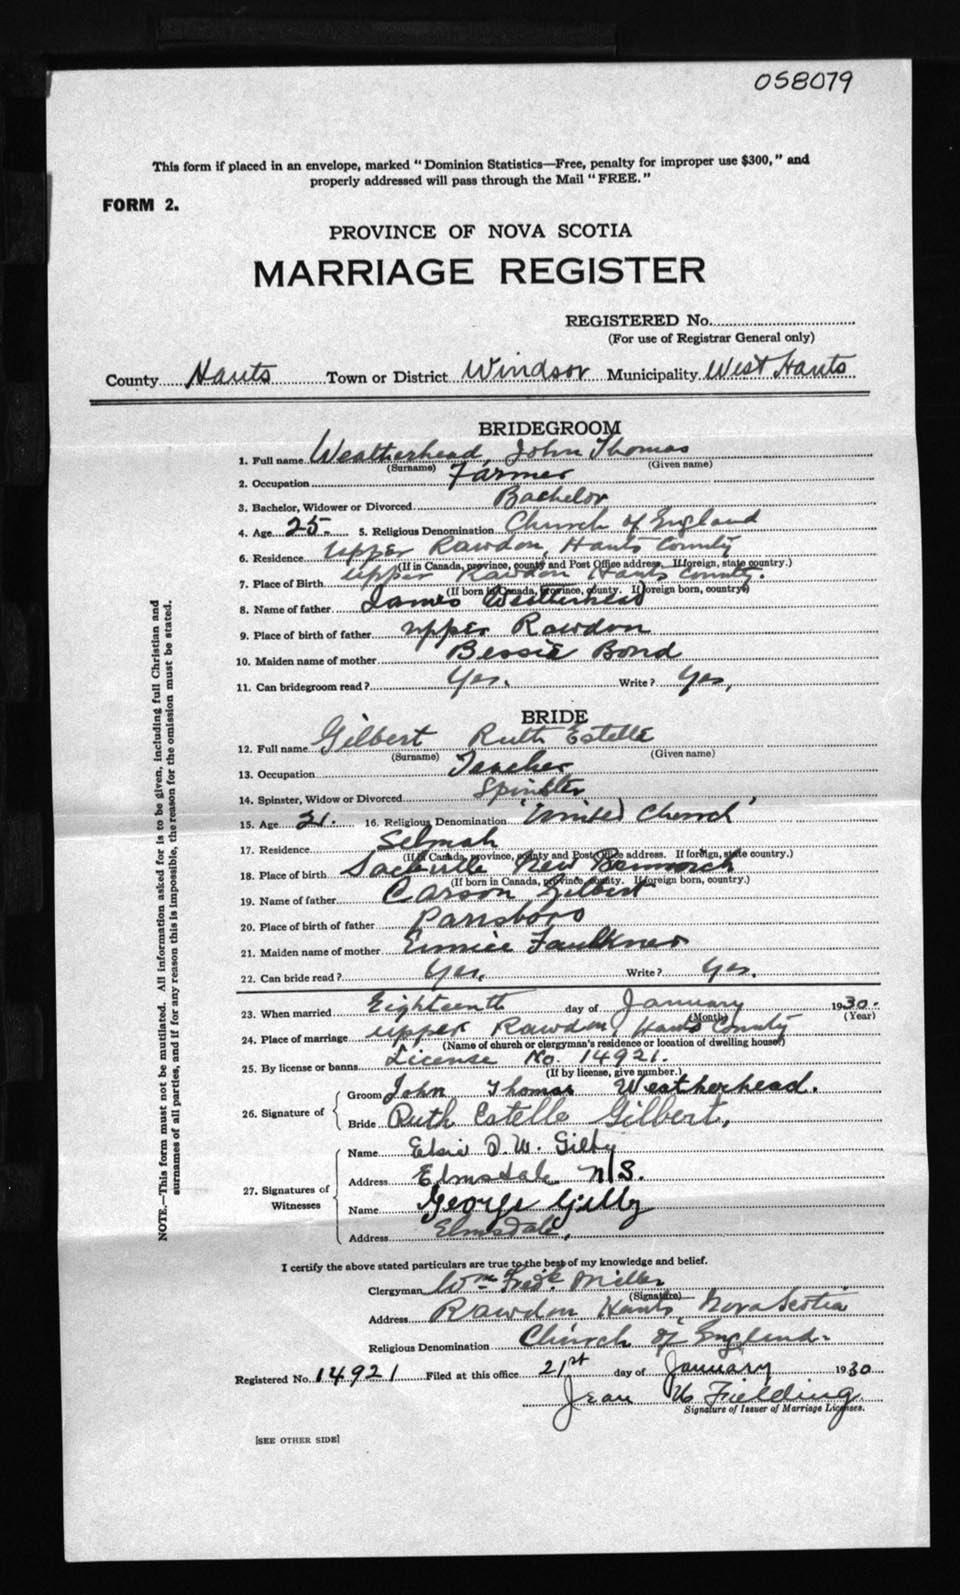 058079
This form if placed in an envelope, marked "Dominion Statistics—Free, penalty for improper use $300," and
properly addressed will pass through the Mail "FREE."
FORM 2.
PROVINCE OF NOVA SCOTIA
MARRIAGE REGISTER
REGISTERED No.
(For use of Registrar General only)
County Hants Town or District Windsor Municipality West Hants
BRIDEGROOM
1. Full name Weatherhead, John Thomas
(Surname) (Given name)
2. Occupation Farmer
3. Bachelor, Widower or Divorced Bachelor
4. Age 25. 5. Religious Denomination Church of England
6. Residence Upper Rawdon, Hants County
(If in Canada, province, county and Post Office address. If foreign, state country.)
7. Place of Birth Upper Rawdon Hants County.
(If born in Canada, province, county. If foreign born, country)
8. Name of father James Weatherhead
9. Place of birth of father Upper Rawdon
10. Maiden name of mother Bessie Bond
11. Can bridegroom read? Yes. Write? Yes,
BRIDE
12. Full name Gilbert Ruth Estelle
(Surname) (Given name)
13. Occupation Teacher
14. Spinster, Widow or Divorced Spinster
15. Age 21. 16. Religious Denomination 'United Church'
17. Residence Selmah
(If in Canada, province, county and Post Office address. If foreign, state country.)
18. Place of birth Sackville New Brunswick
(If born in Canada, province, county. If foreign born, country.)
19. Name of father Carson Gilbert
20. Place of birth of father Parrsboro
21. Maiden name of mother Eunice Faulkner
22. Can bride read? Yes, Write? Yes.
23. When married Eighteenth day of January 1930.
(Month) (Year)
24. Place of marriage Upper Rawdon, Hants County
(Name of church or clergyman's residence or location of dwelling house)
25. By license or banns License No. 14921.
(If by license, give number.)
26. Signature of
Groom John Thomas Weatherhead.
Bride Ruth Estelle Gilbert,
27. Signatures of Witnesses
Name Elsie D. W. Gilby
Address Elmsdale N/S.
Name George Gilby
Address Elmsdale,
I certify the above stated particulars are true to the best of my knowledge and belief.
Clergyman Wm Fredk Miller
(Signature)
Address Rawdon, Hants, Nova Scotia
Religious Denomination Church of England.
Registered No. 14921 Filed at this office 21st day of January 1930
Jean Fielding
Signature of Issuer of Marriage Licenses.
[SEE OTHER SIDE]
NOTE.—This form must not be mutilated. All information asked for is to be given, including full Christian and
surnames of all parties, and if for any reason this is impossible, the reason for the omission must be stated.